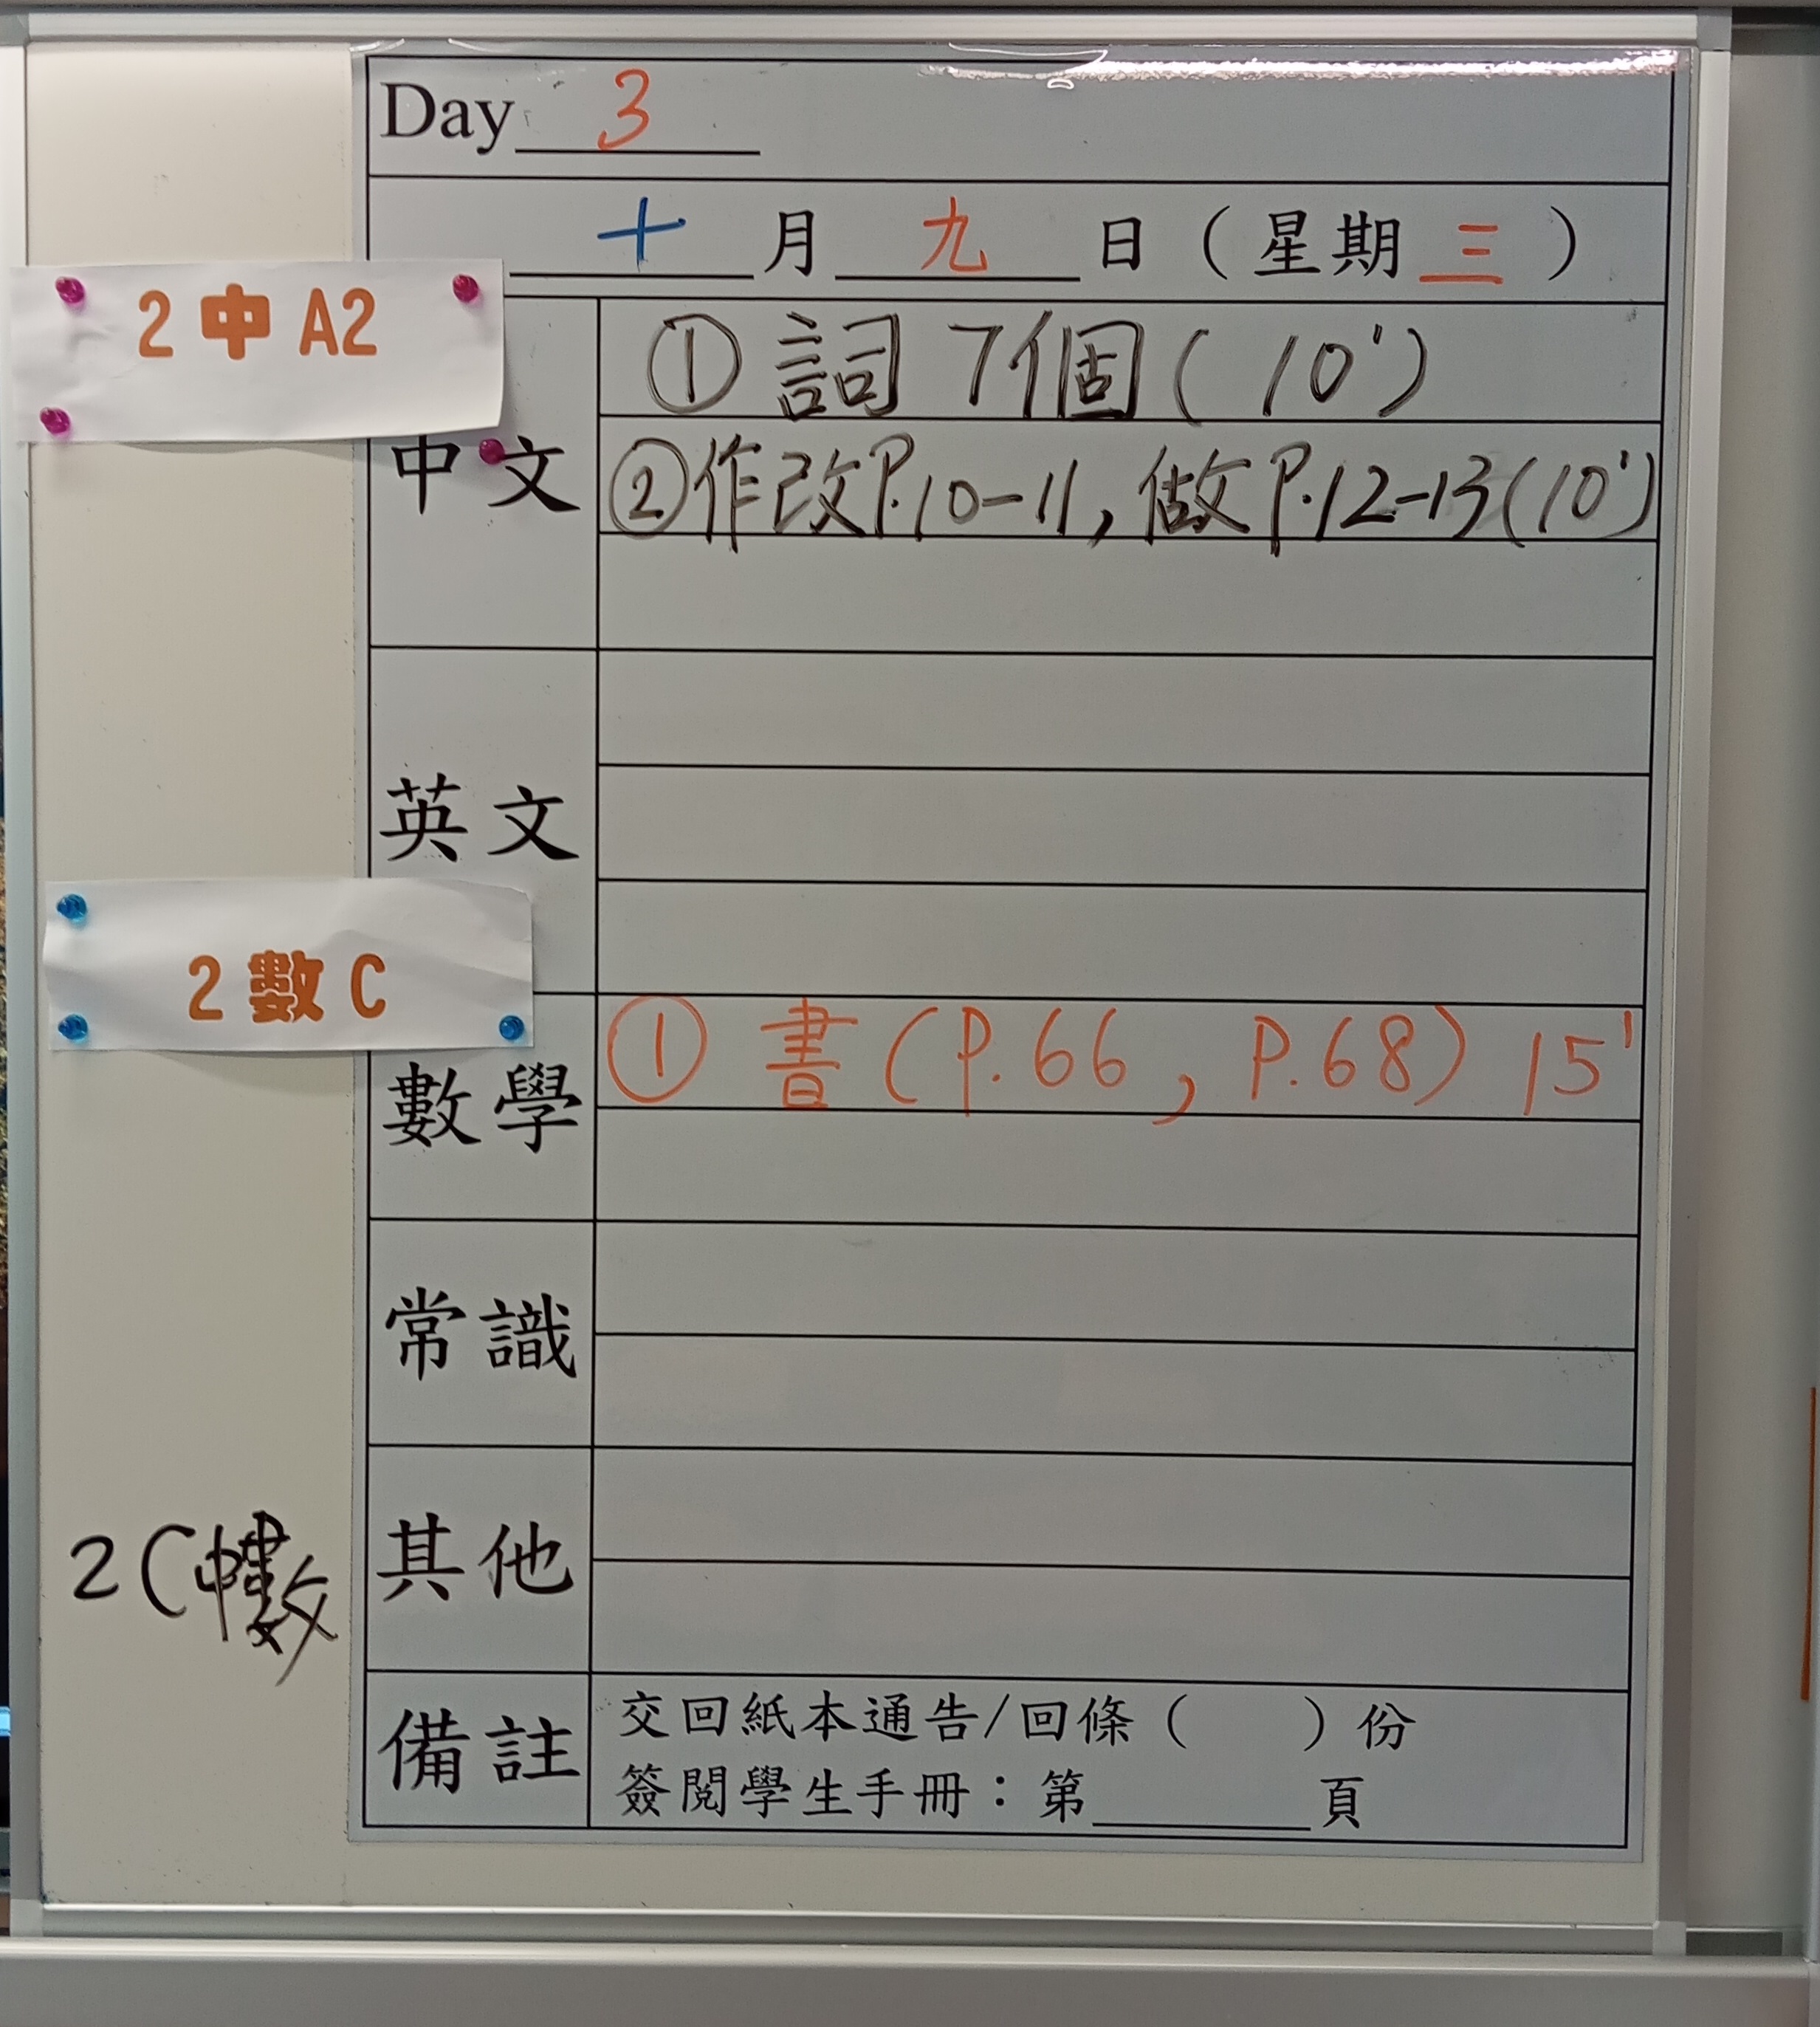 Day 3
十月九日（星期三）
2中A2
中文
①詞7個(10')
②作改P.10-11,做P.12-13(10')
英文
2數C
數學
①書(P.66,P.68)15'
常識
其他
2C中數
備註
交回紙本通告/回條（ ）份
簽閱學生手冊：第______頁